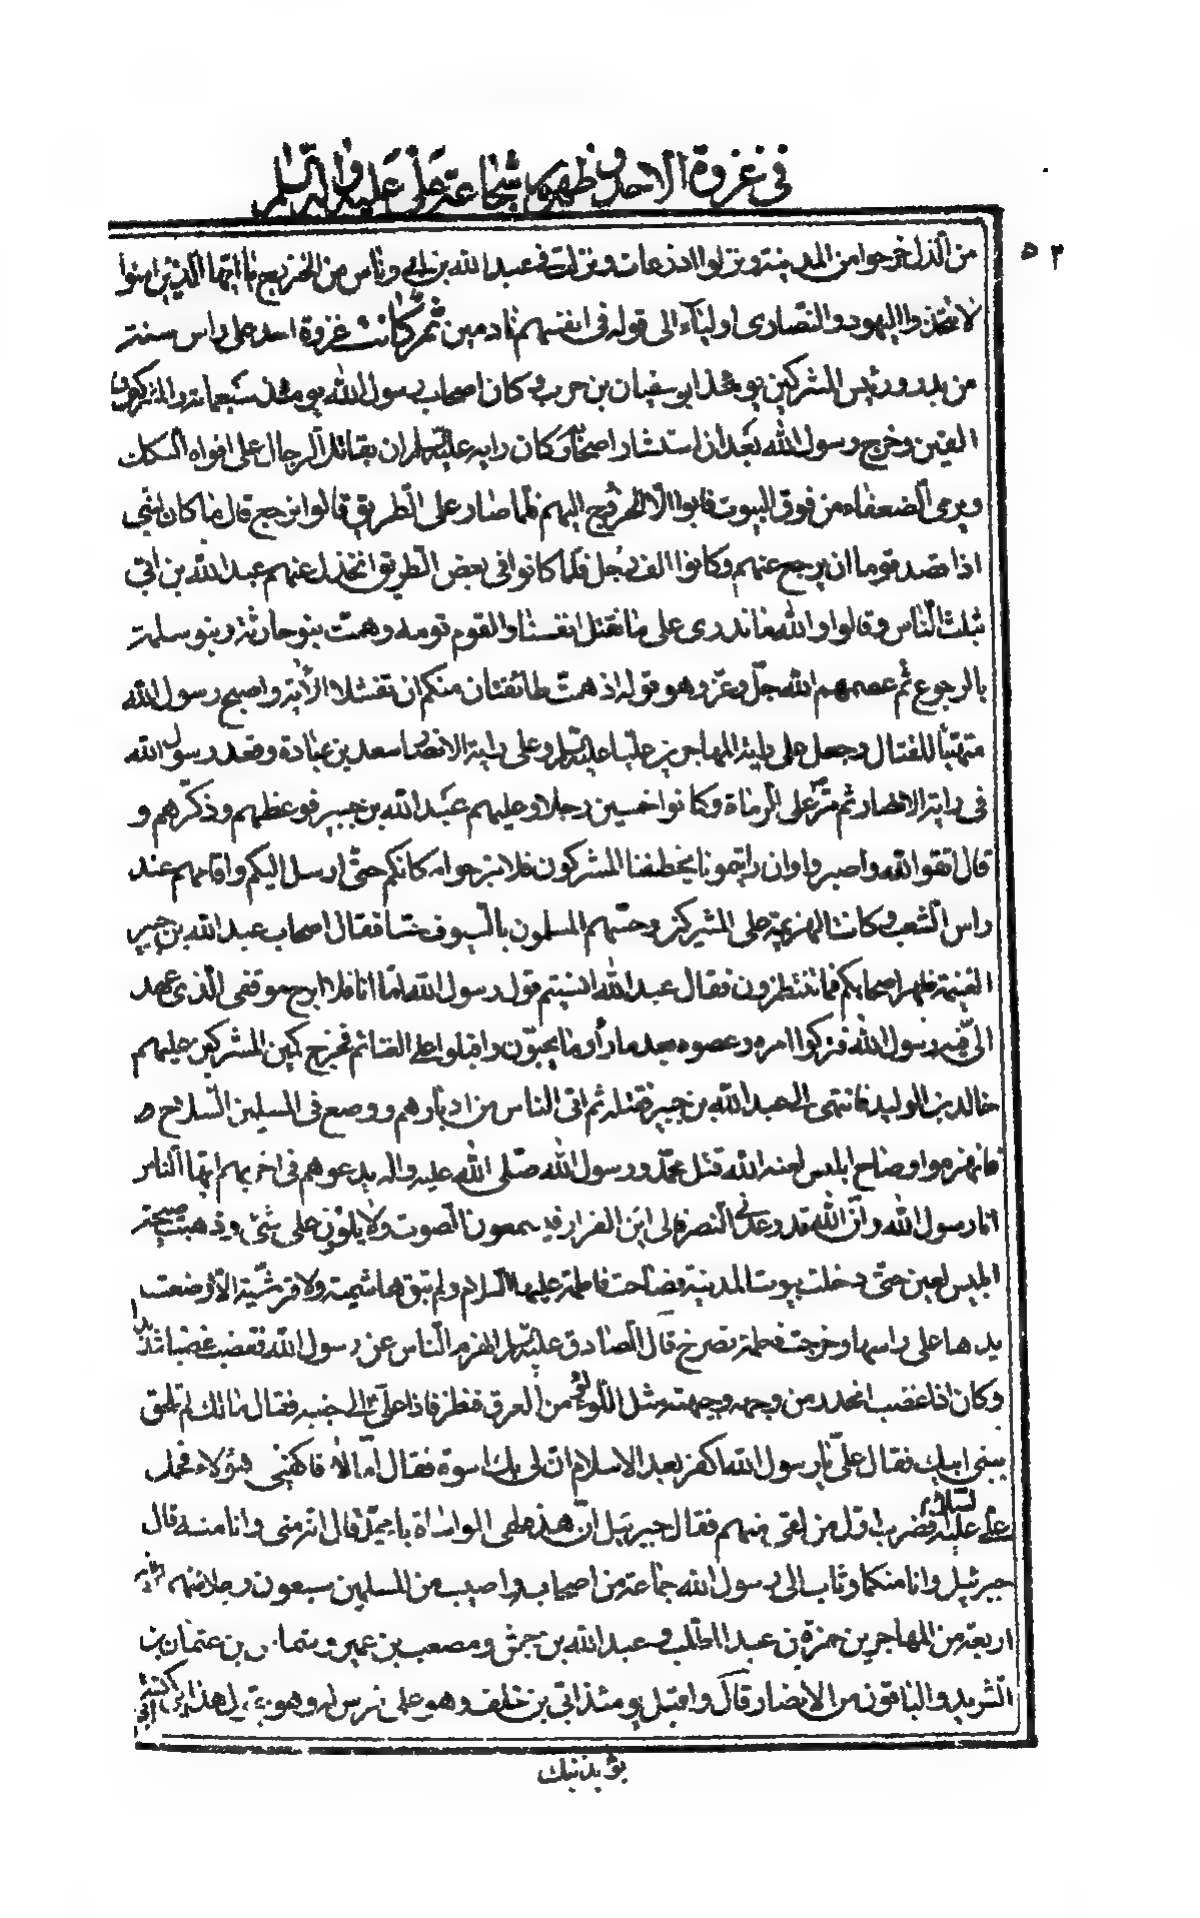 في غزوة الاحد وظهور شجاعته صلى عليه واله السلم
٥٣
من الذل خرجوا من المدينة ونزلوا اذرعات ونزلت في عبد الله بن ابي وناس من الخزرج يا ايها الذين امنوا
لا تتخذوا اليهود والنصارى اولياء الى قوله في انفسهم نادمين ثم كانت غزوة احد على راس سنة
من بدر ورئيس المشركين يومئذ ابو سفيان بن حرب وكان اصحاب رسول الله يومئذ سبعمائة والمشركون
الفين وخرج رسول الله بعد ان استشار اصحابه وكان رايه عليه السلم ان يقاتل الرجال على افواه السكك
ويرمى الضعفاء من فوق البيوت فابوا الا الخروج اليهم فلما صار على الطريق قالوا نرجع قال ما كان لنبي
اذا قصد قوما ان يرجع عنهم وكانوا الف رجل فلما كانوا في بعض الطريق انخذل عنهم عبد الله بن ابي
بثلث الناس وقالوا والله ما ندرى على ما نقتل انفسنا والقوم قومه وهمت بنو حارثة وبنو سلمة
بالرجوع ثم عصمهم الله جل وعز وهو قوله اذ همت طائفتان منكم ان تفشلا الاية واصبح رسول الله
متهيئا للقتال وجعل على راية المهاجرين عليا عليه السلم وعلى راية الانصار سعد بن عبادة وقعد رسول الله
في راية الانصار ثم مر على الرماة وكانوا خمسين رجلا وعليهم عبد الله بن جبير فوعظهم وذكرهم و
قال اتقوا الله واصبروا وان رايتمونا يخطفنا المشركون فلا تبرحوا مكانكم حتى ارسل اليكم واقامهم عند
راس الشعب وكانت الهزيمة على المشركين وحسهم المسلمون بالسيوف حسا فقال اصحاب عبد الله بن جبير
الغنيمة ظهر اصحابكم فما تنتظرون فقال عبد الله انسيتم قول رسول الله اما انا فلا ابرح موقفى الذي عهد
الى فيه رسول الله فتركوا امره وعصوه بعد ما راوا ما يحبون واقبلوا على الغنائم فخرج كمين المشركين عليهم
خالد بن الوليد فانتهى الى عبد الله بن جبير فقتله ثم اتى الناس من ادبارهم ووضع في المسلمين السلاح
فانهزموا وصاح ابليس لعنه الله قتل محمد ورسول الله صلى الله عليه واله يدعوهم في اخريهم ايها الناس
انا رسول الله وان الله قد وعدنى النصر فالى اين الفرار فيسمعون الصوت ولا يلوون على شئ وذهبت صيحة
ابليس لعين حتى دخلت بيوت المدينة فصاحت فاطمة عليها السلام ولم تبق هاشمية ولا قرشية الا وضعت
يدها على راسها وخرجت فاطمة تصرخ قال الصادق عليه السلم انهزم الناس عن رسول الله فغضب غضبا شديدا
وكان اذا غضب انحدر من وجهه وجبهته مثل اللؤلؤ من العرق فنظر فاذا على الى جنبه فقال مالك لم تلحق
ببنى ابيك فقال على يا رسول الله اكفر بعد الاسلام ان لى بك اسوة فقال اما لا فاكفنى هؤلاء فحمل
على عليه السلام فضرب اول من لقى منهم فقال جبرئيل ان هذه لهى المواساة يا محمد قال انه منى وانا منه قال
جبرئيل وانا منكما وثاب الى رسول الله جماعة من اصحابه واصيب من المسلمين سبعون رجلا منهم
اربعة من المهاجرين حمزة بن عبد المطلب وعبد الله بن جحش ومصعب بن عمير وشماس بن عثمان بن
الشريد والباقون من الانصار قال واقبل يومئذ ابي بن خلف وهو على فرس له وهو يقول هذا ابن ابي كبشة
بؤ بذنبك